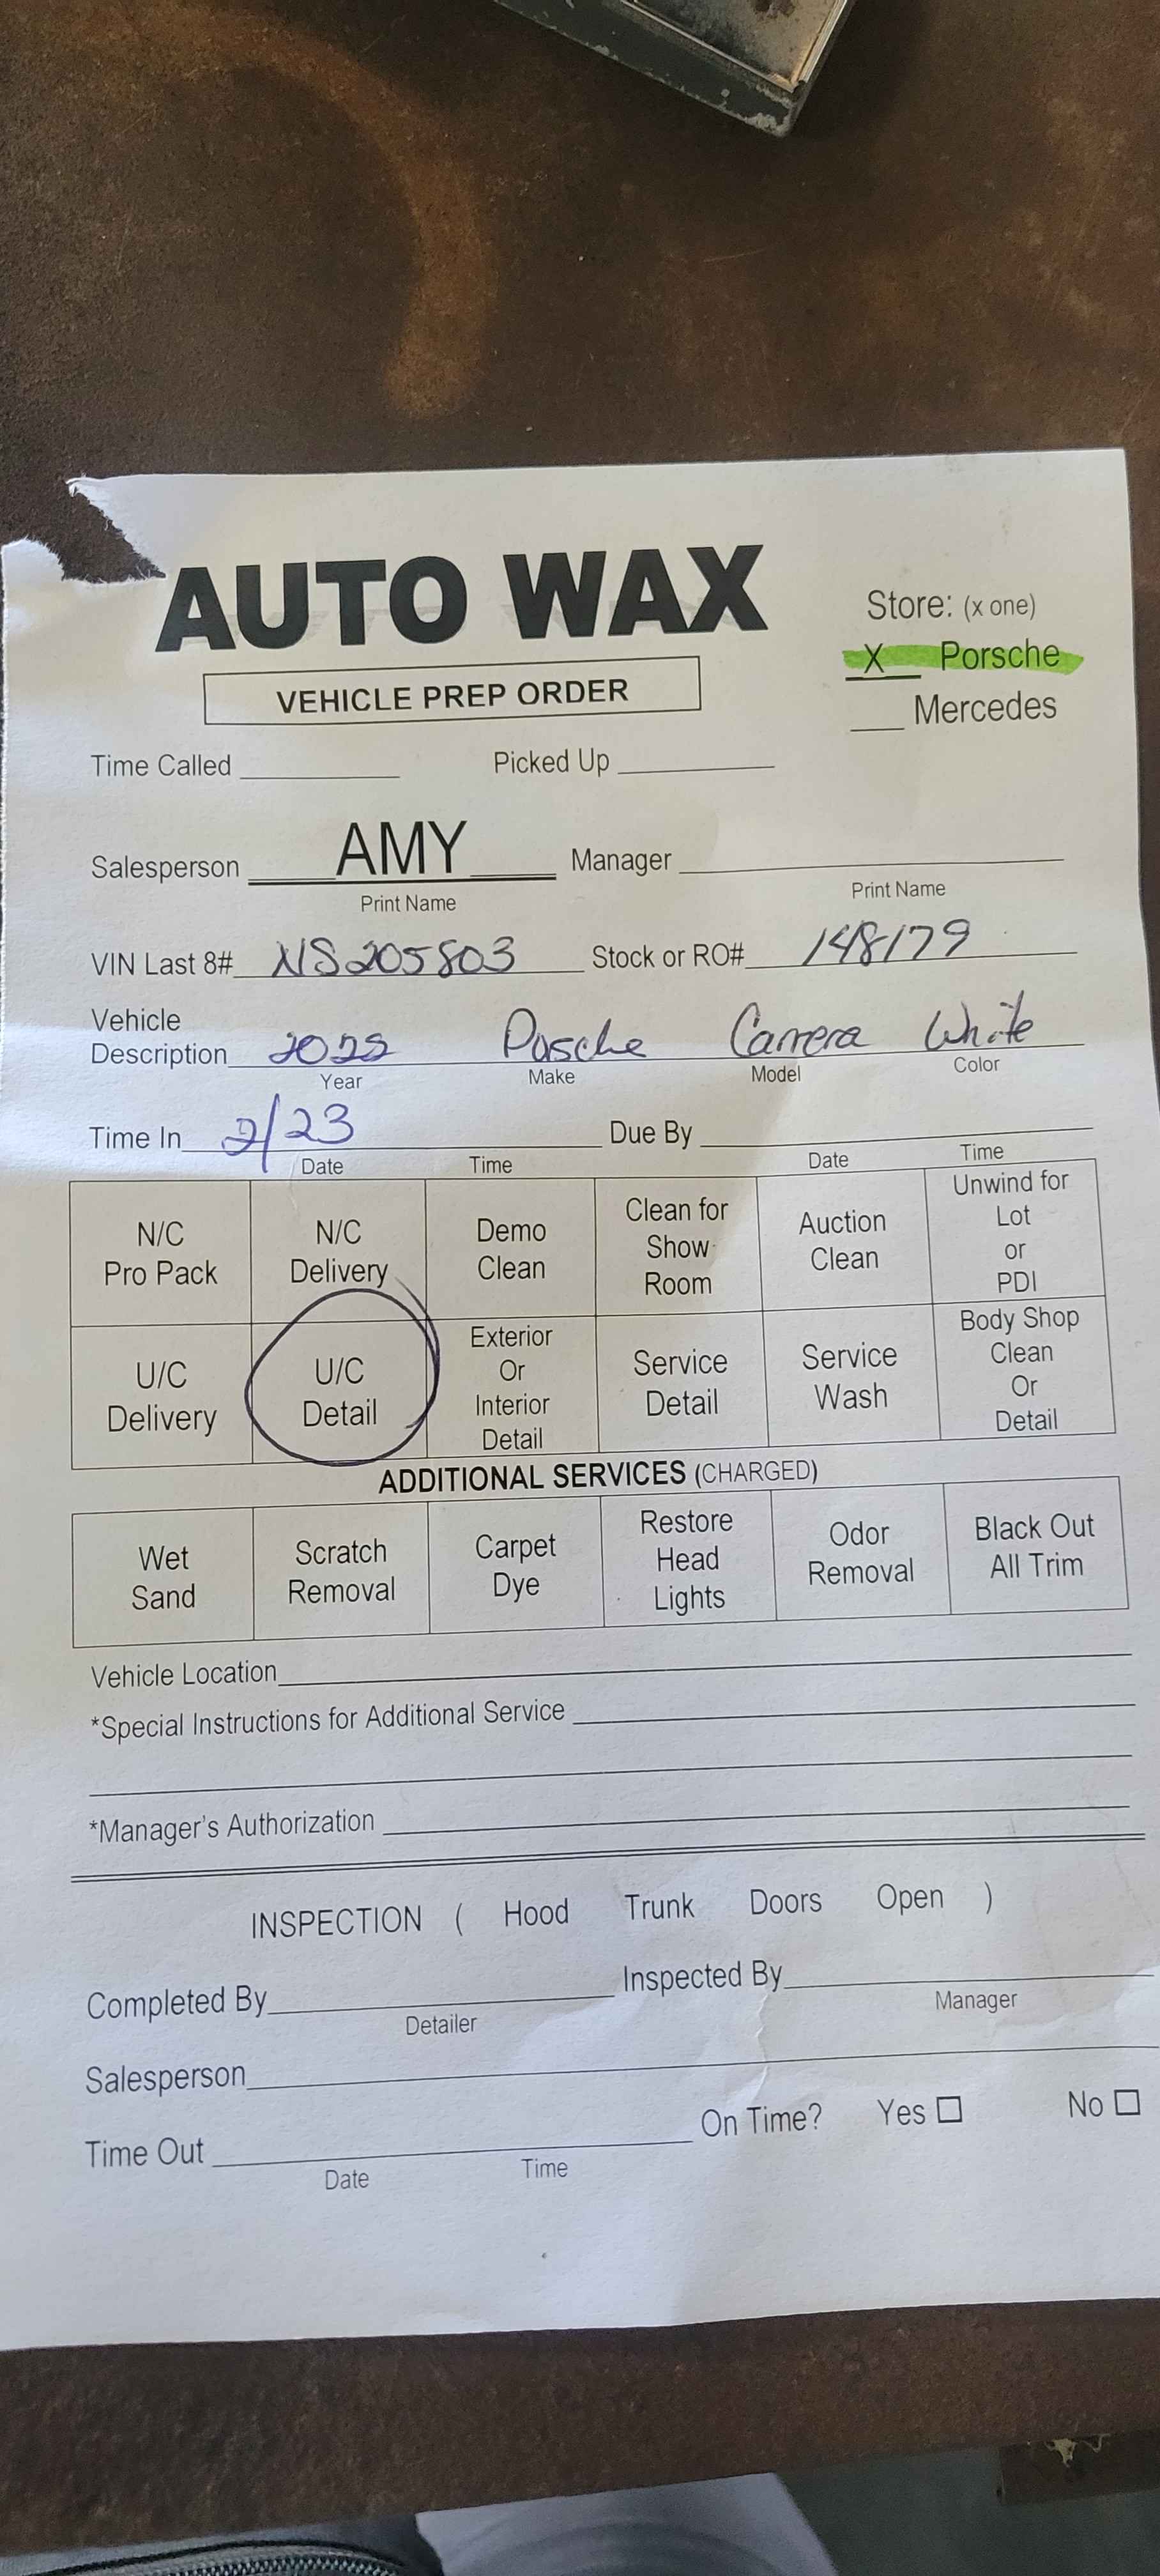 AUTO WAX
VEHICLE PREP ORDER
Store: (x one)
X Porsche
Mercedes
Time Called Picked Up
Salesperson AMY Manager
Print Name Print Name
VIN Last 8# NS205803 Stock or RO# 148179
Vehicle
Description 2022 Posche Carrera White
Year Make Model Color
Time In 2/23 Due By
Date Time Date Time
N/C Pro Pack
N/C Delivery
Demo Clean
Clean for Show Room
Auction Clean
Unwind for Lot or PDI
U/C Delivery
U/C Detail
Exterior Or Interior Detail
Service Detail
Service Wash
Body Shop Clean Or Detail
ADDITIONAL SERVICES (CHARGED)
Wet Sand
Scratch Removal
Carpet Dye
Restore Head Lights
Odor Removal
Black Out All Trim
Vehicle Location
*Special Instructions for Additional Service
*Manager's Authorization
INSPECTION ( Hood Trunk Doors Open )
Completed By Inspected By
Detailer Manager
Salesperson
Time Out On Time? Yes No
Date Time